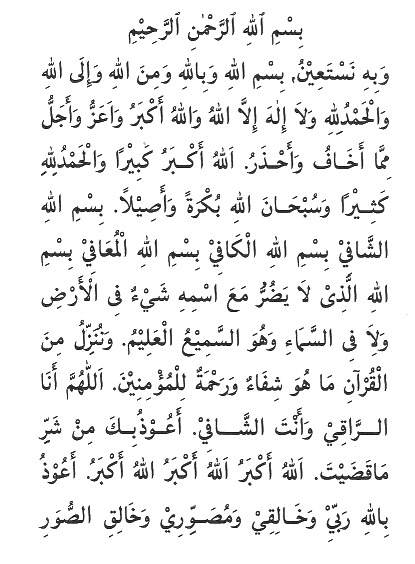 بِسْمِ ٱللهِ ٱلرَّحْمٰنِ ٱلرَّحِيْمِ
وَبِهِ نَسْتَعِيْنُ, بِسْمِ اللهِ وَبِاللهِ وَمِنَ اللهِ وَإِلَى اللهِ
وَالْحَمْدُلِلهِ وَلاَ إِلٰهَ إِلَّا اللهُ وَاللهُ أَكْبَرُ وَاَعَزُّ وَأَجَلُّ
مِمَّا أَخَافُ وَأَحْذَرُ. اَللهُ أَكْبَرُ كَبِيْرًا وَالْحَمْدُلِلهِ
كَثِيْرًا وَسُبْحَانَ اللهِ بُكْرَةً وَأَصِيْلاً. بِسْمِ اللهِ
الشَّافِيْ بِسْمِ اللهِ الْكَافِيْ بِسْمِ اللهِ الْمُعَافِيْ بِسْمِ
اللهِ الَّذِىْ لاَ يَضُرُّ مَعَ اسْمِهِ شَيْءٌ فِى الْأَرْضِ
وَلاَ فِى السَّمَاءِ وَهُوَ السَّمِيْعُ الْعَلِيْمُ. وَنُنَزِّلُ مِنَ
الْقُرْآنِ مَا هُوَ شِفَاءٌ وَرَحْمَةٌ لِلْمُؤْمِنِيْنَ. اَللّٰهُمَّ أَنَا
الرَّاقِيْ وَأَنْتَ الشَّافِيْ. أَعُوْذُبِكَ مِنْ شَرِّ
مَاقَضَيْتَ. اَللهُ أَكْبَرُ اَللهُ أَكْبَرُ اَللهُ أَكْبَرُ. أَعُوْذُ
بِاللهِ رَبِّيْ وَخَالِقِيْ وَمُصَوِّرِيْ وَخَالِقِ الصُّوَرِ